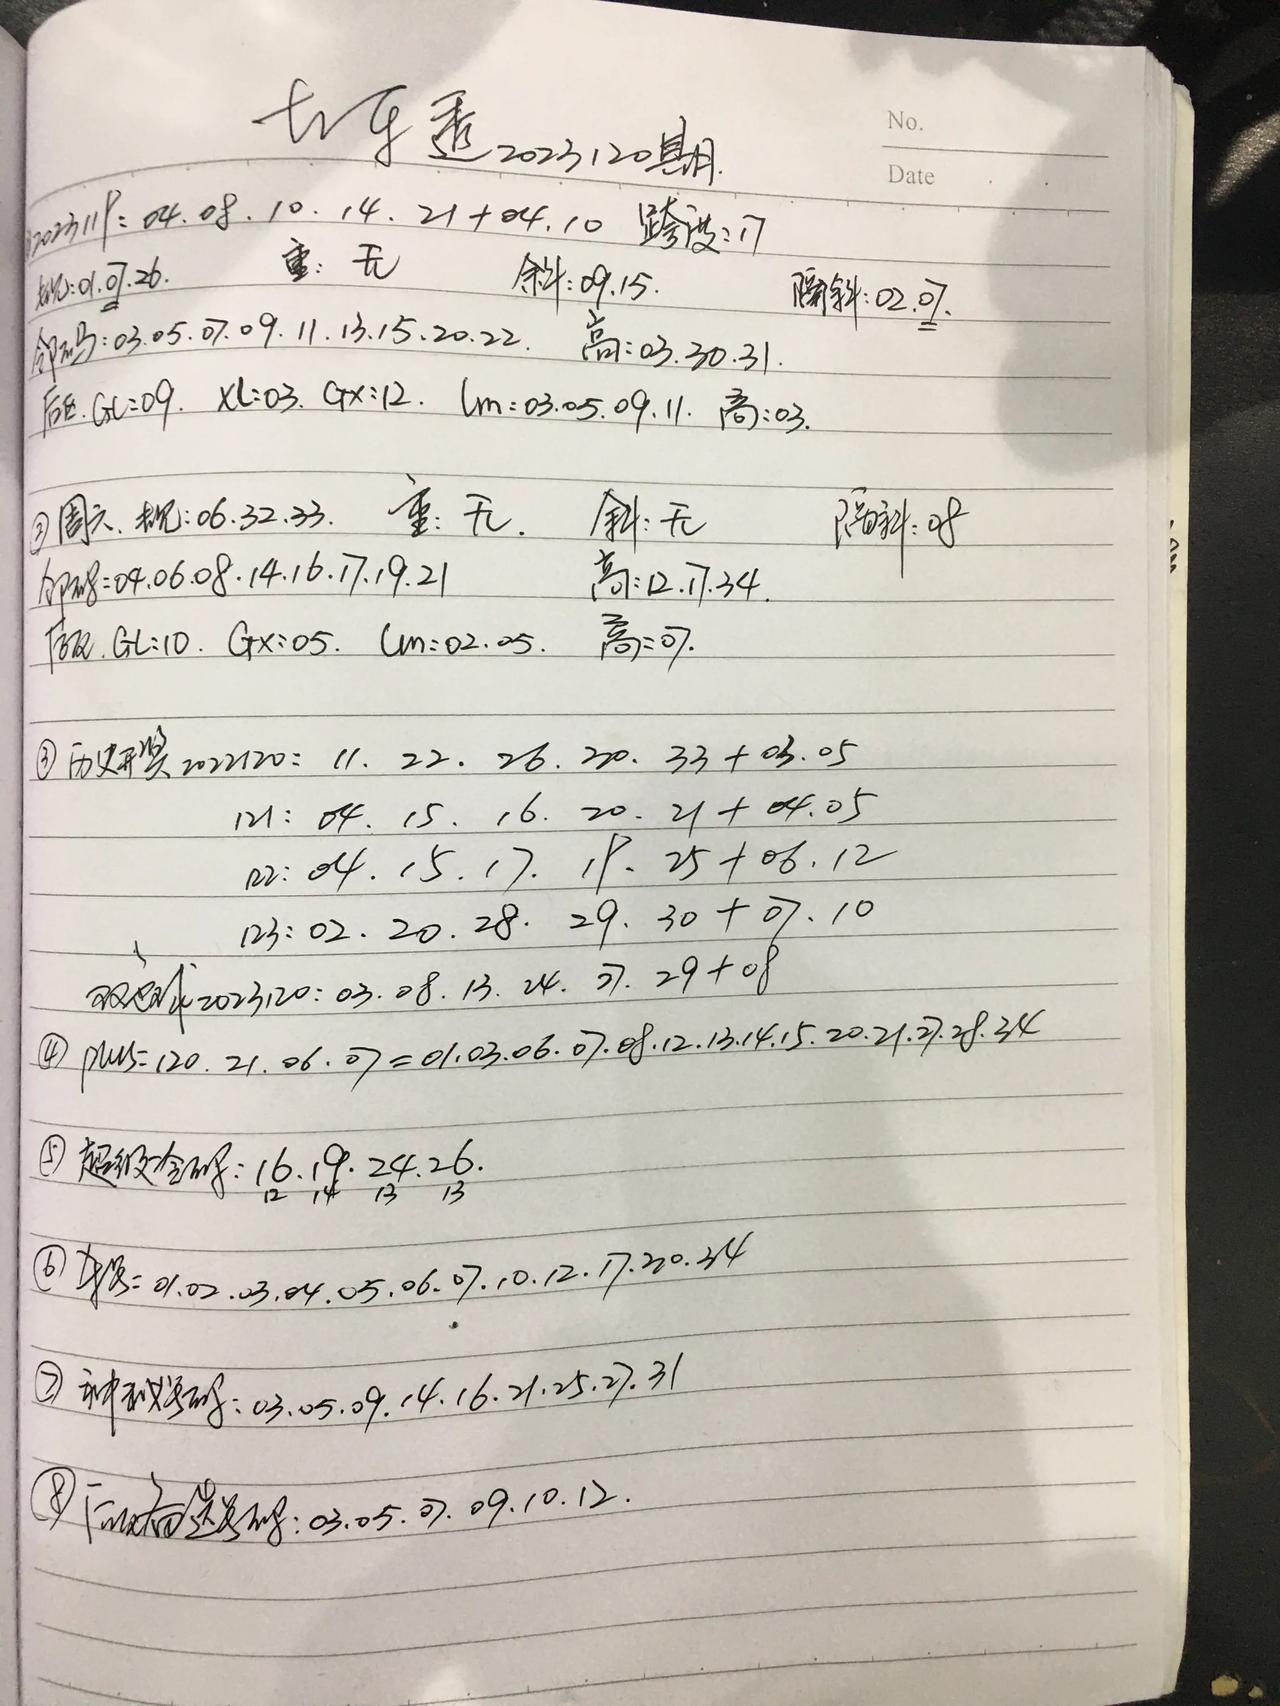 大乐透2023120期
No.
Date
①2023119: 04.08.10.14.21+04.10 跨度:17
规:01.07.26. 重:无 斜:09.15. 隔斜:02.07.
邻码:03.05.07.09.11.13.15.20.22. 高:03.30.31.
后区.GL:09. XL:03. GX:12. Lm:03.05.09.11. 高:03.
②周六.规:06.32.33. 重:无. 斜:无 隔斜:08
邻码:04.06.08.14.16.17.19.21 高:12.17.34.
后区.GL:10. GX:05. Lm:02.05. 高:07.
③历史开奖2022120: 11. 22. 26. 30. 33+03.05
121: 04. 15. 16. 20. 21+04.05
122: 04. 15. 17. 19. 25+06.12
123: 02. 20. 28. 29. 30+07.10
双色球2023120: 03.08.13.24.27.29+08
④plus=120.21.06.07=01.03.06.07.08.12.13.14.15.20.21.27.28.34
⑤超级金码:16.19.24.26.
12 14 13 13
⑥ 01.02.03.04.05.06.07.10.12.17.30.34
⑦神秘号码:03.05.09.14.16.21.25.27.31
⑧后区备选号码:03.05.07.09.10.12.